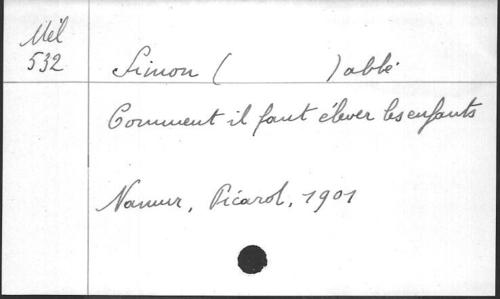 Mél
532
Simon ( ) abbé
Comment il faut élever les enfants
Namur, Picard, 1901